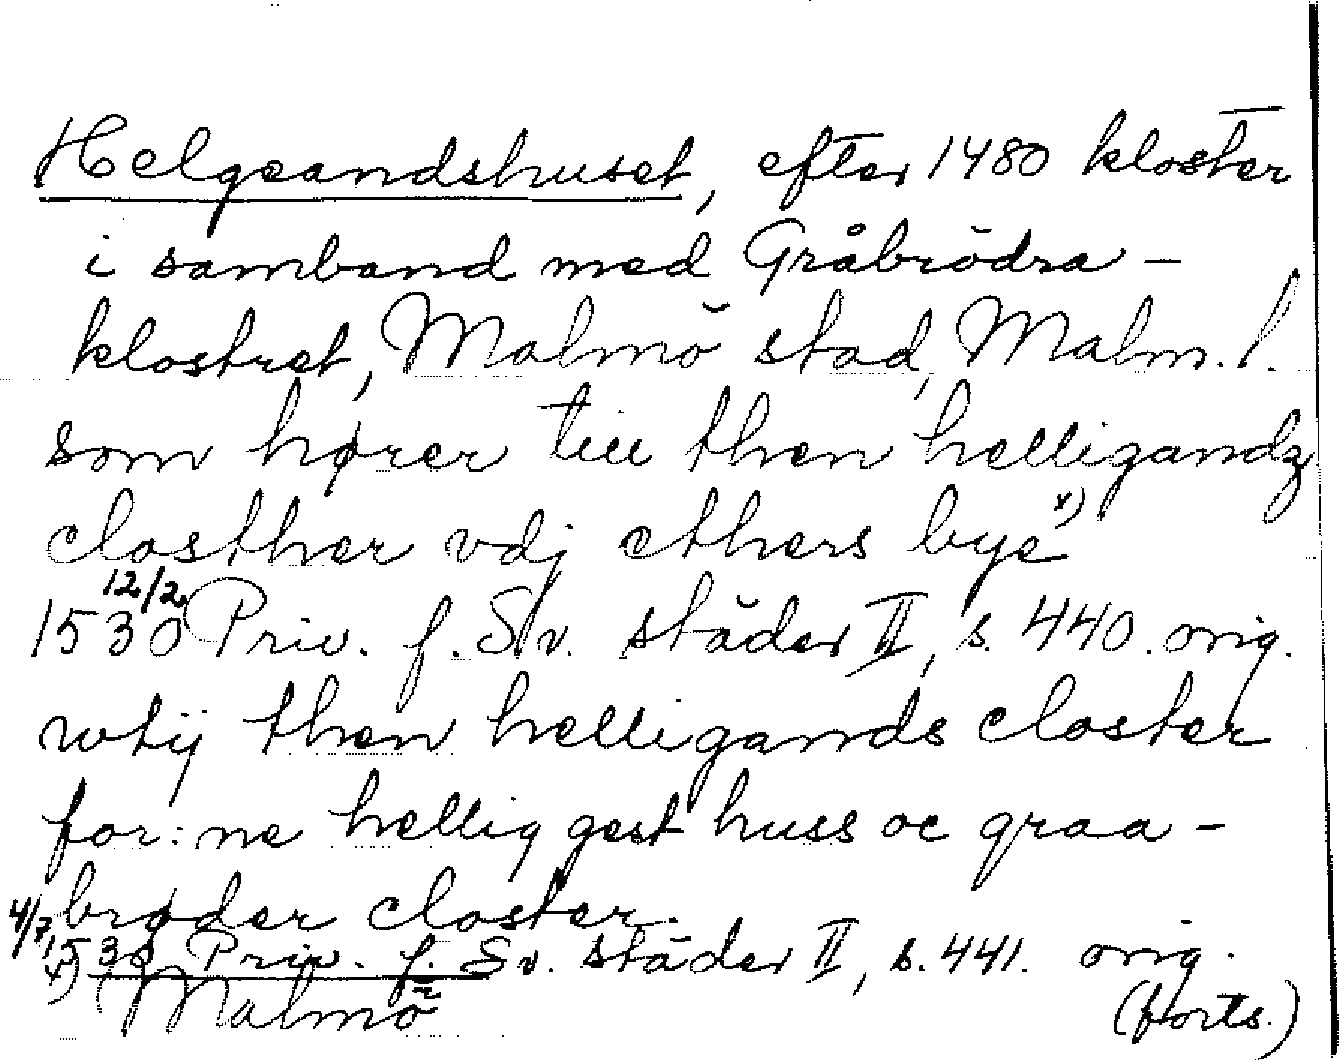 Helgeandshuset, efter 1480 kloster
i samband med Gråbrödra-
klostret, Malmö stad, Malm. l.
som hører till then helligandz
closther vdj ethers bye x)
12/2
1530 Priv. f. Sv. städer II, s. 440. orig.
wtij then helligands closter
for:ne hellig gest huss oc graa-
brøder closter.
4/7 1530 Priv. f. Sv. städer II, s. 441. orig.
x) Malmö
(forts.)